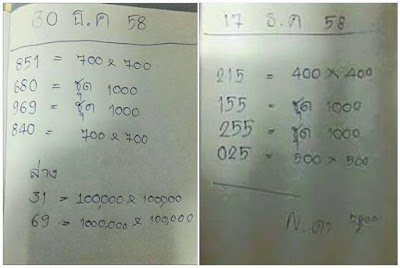 30 มี.ค 58
851 = 700 x 700
680 = ชุด 1000
969 = ชุด 1000
840 = 700 x 700
ล่าง
31 = 100,000 x 100,000
69 = 1000,000 x 100,000
17 ธ.ค 58
215 = 400 x 400
155 = ชุด 1000
255 = ชุด 1000
025 = 500 x 500